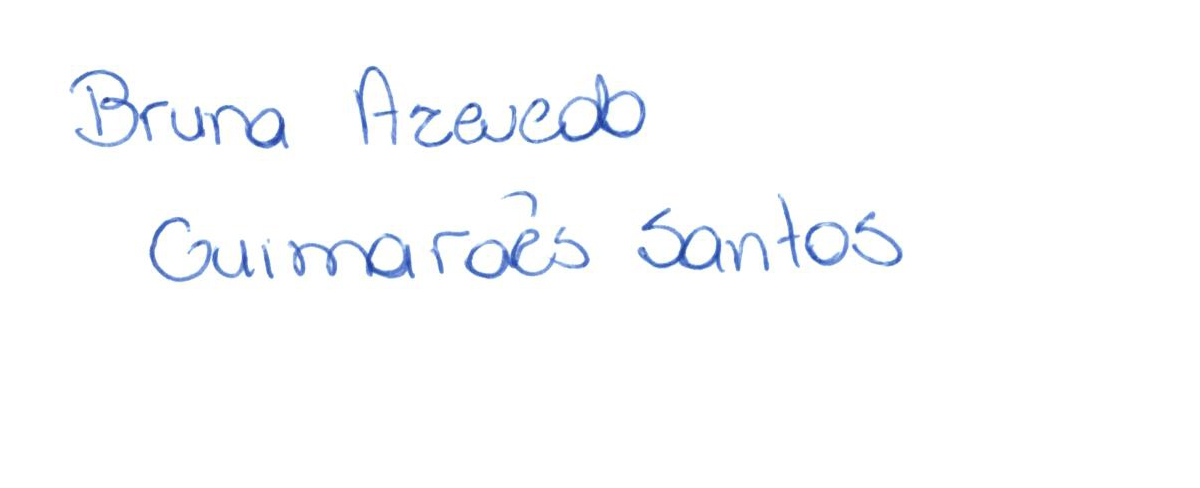 Bruna Azevedo
Guimarães Santos